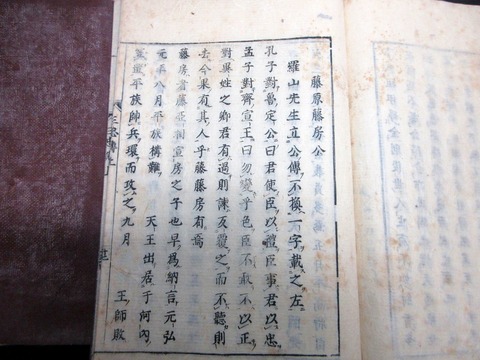 藤原藤房公
羅山先生直公傳不換一字載之左
孔子對魯定公曰君使臣以禮臣事君以忠
孟子對齊宣王曰勿變乎色臣不敢不以正
對異姓之卿君有過則諫反覆之而不聽則
去今果有其人乎藤藤房有焉
藤房者藤亞相宣房之子也早爲納言元弘
元年八月平族構難　天王出居于河内
置平族帥兵環而攻之九月　王師敗